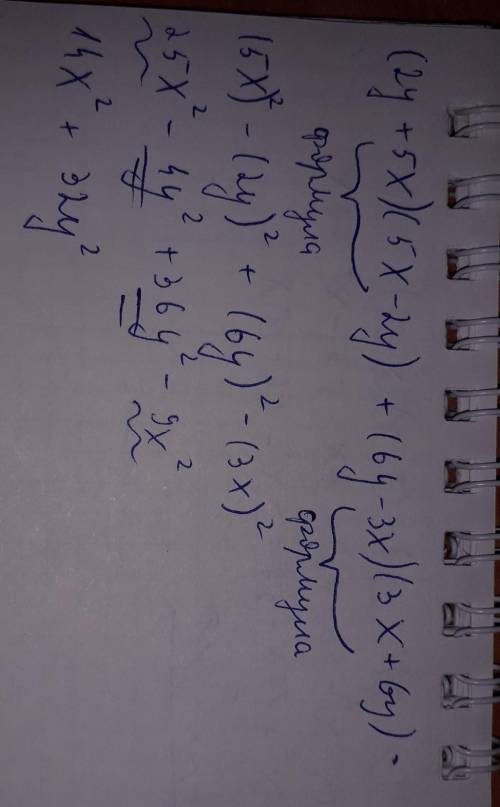 (2y + 5x)(5x - 2y) + (6y - 3x)(3x + 6y) =
формула формула
(5x)² - (2y)² + (6y)² - (3x)²
25x² - 4y² + 36y² - 9x²
14x² + 32y²